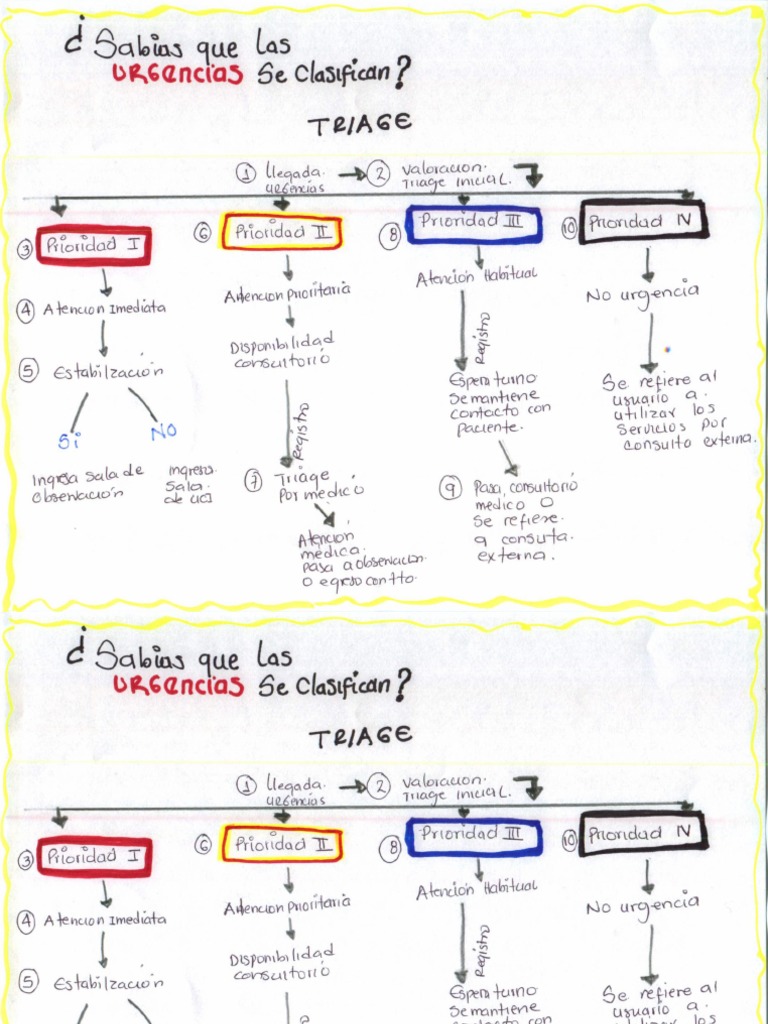 ¿ Sabias que las
URGencias Se Clasifican?
TRIAGE
① llegada.
urgencias
② valoracion.
Triage inicial.
③ Prioridad I
④ Atencion Imediata
⑤ Estabilzación
Si
NO
Ingresa Sala de
Observación
Ingreso
Sala.
de UCI
⑥ Prioridad II
Atencion Prioritaria
Disponibilidad
consultorio
Registro
⑦ Triage
Por medico
Atención
médica.
Pasa a observación.
o egreso con tto.
⑧ Prioridad III
Atencion Habitual
Registro
Espera turno
Se mantiene
contacto con
Paciente.
⑨ Pasa, consultorio
medico O
Se refiere.
a consulta.
externa.
⑩ Prioridad IV
No urgencia
Se refiere al
usuario a.
utilizar los
Servicios por
consulta externa.
¿ Sabias que las
URGencias Se Clasifican?
TRIAGE
① llegada.
urgencias
② valoracion.
Triage inicial.
③ Prioridad I
④ Atencion Imediata
⑤ Estabilzación
⑥ Prioridad II
Atencion Prioritaria
Disponibilidad
consultorio
⑧ Prioridad III
Atencion Habitual
Registro
Espera turno
Se mantiene
contacto con
⑩ Prioridad IV
No urgencia
Se refiere al
usuario a.
utilizar los